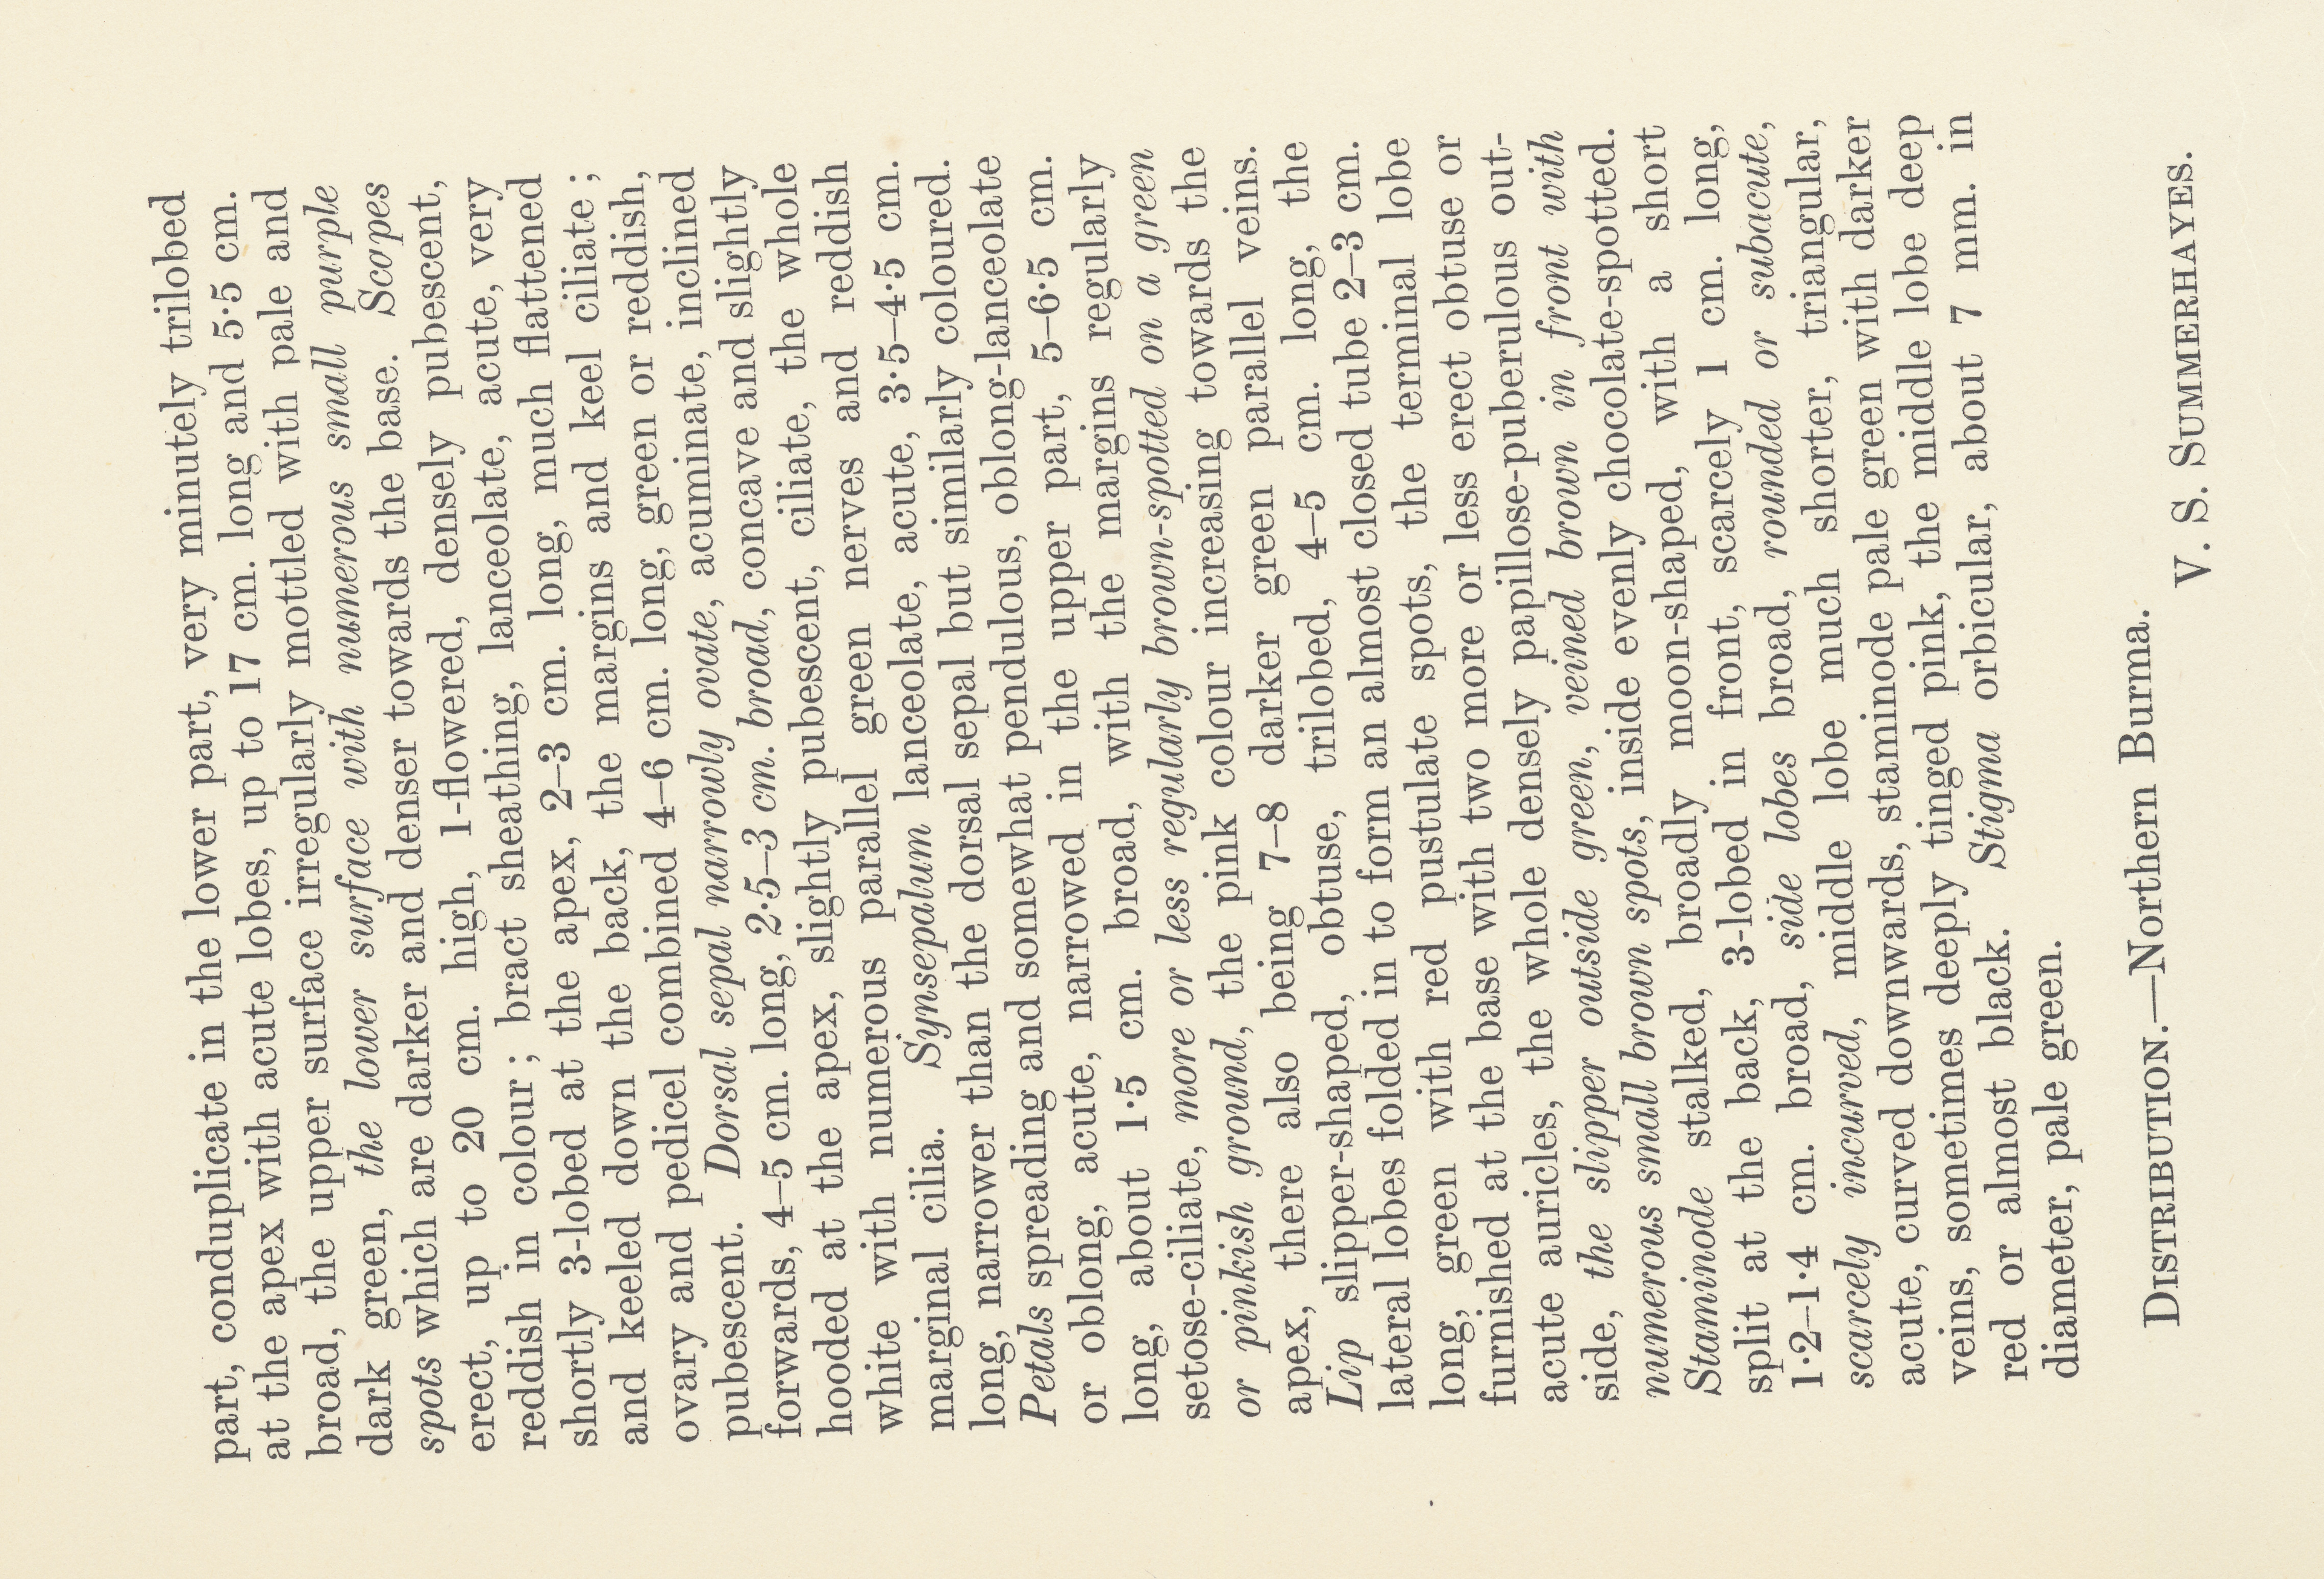 part, conduplicate in the lower part, very minutely trilobed
at the apex with acute lobes, up to 17 cm. long and 5·5 cm.
broad, the upper surface irregularly mottled with pale and
dark green, the lower surface with numerous small purple
spots which are darker and denser towards the base. Scopes
erect, up to 20 cm. high, 1-flowered, densely pubescent,
reddish in colour; bract sheathing, lanceolate, acute, very
shortly 3-lobed at the apex, 2–3 cm. long, much flattened
and keeled down the back, the margins and keel ciliate;
ovary and pedicel combined 4–6 cm. long, green or reddish,
pubescent. Dorsal sepal narrowly ovate, acuminate, inclined
forwards, 4–5 cm. long, 2·5–3 cm. broad, concave and slightly
hooded at the apex, slightly pubescent, ciliate, the whole
white with numerous parallel green nerves and reddish
marginal cilia. Synsepalum lanceolate, acute, 3·5–4·5 cm.
long, narrower than the dorsal sepal but similarly coloured.
Petals spreading and somewhat pendulous, oblong-lanceolate
or oblong, acute, narrowed in the upper part, 5–6·5 cm.
long, about 1·5 cm. broad, with the margins regularly
setose-ciliate, more or less regularly brown-spotted on a green
or pinkish ground, the pink colour increasing towards the
apex, there also being 7–8 darker green parallel veins.
Lip slipper-shaped, obtuse, trilobed, 4–5 cm. long, the
lateral lobes folded in to form an almost closed tube 2–3 cm.
long, green with red pustulate spots, the terminal lobe
furnished at the base with two more or less erect obtuse or
acute auricles, the whole densely papillose-puberulous out-
side, the slipper outside green, veined brown in front with
numerous small brown spots, inside evenly chocolate-spotted.
Staminode stalked, broadly moon-shaped, with a short
split at the back, 3-lobed in front, scarcely 1 cm. long,
1·2–1·4 cm. broad, side lobes broad, rounded or subacute,
scarcely incurved, middle lobe much shorter, triangular,
acute, curved downwards, staminode pale green with darker
veins, sometimes deeply tinged pink, the middle lobe deep
red or almost black. Stigma orbicular, about 7 mm. in
diameter, pale green.
DISTRIBUTION.—Northern Burma.
V. S. SUMMERHAYES.